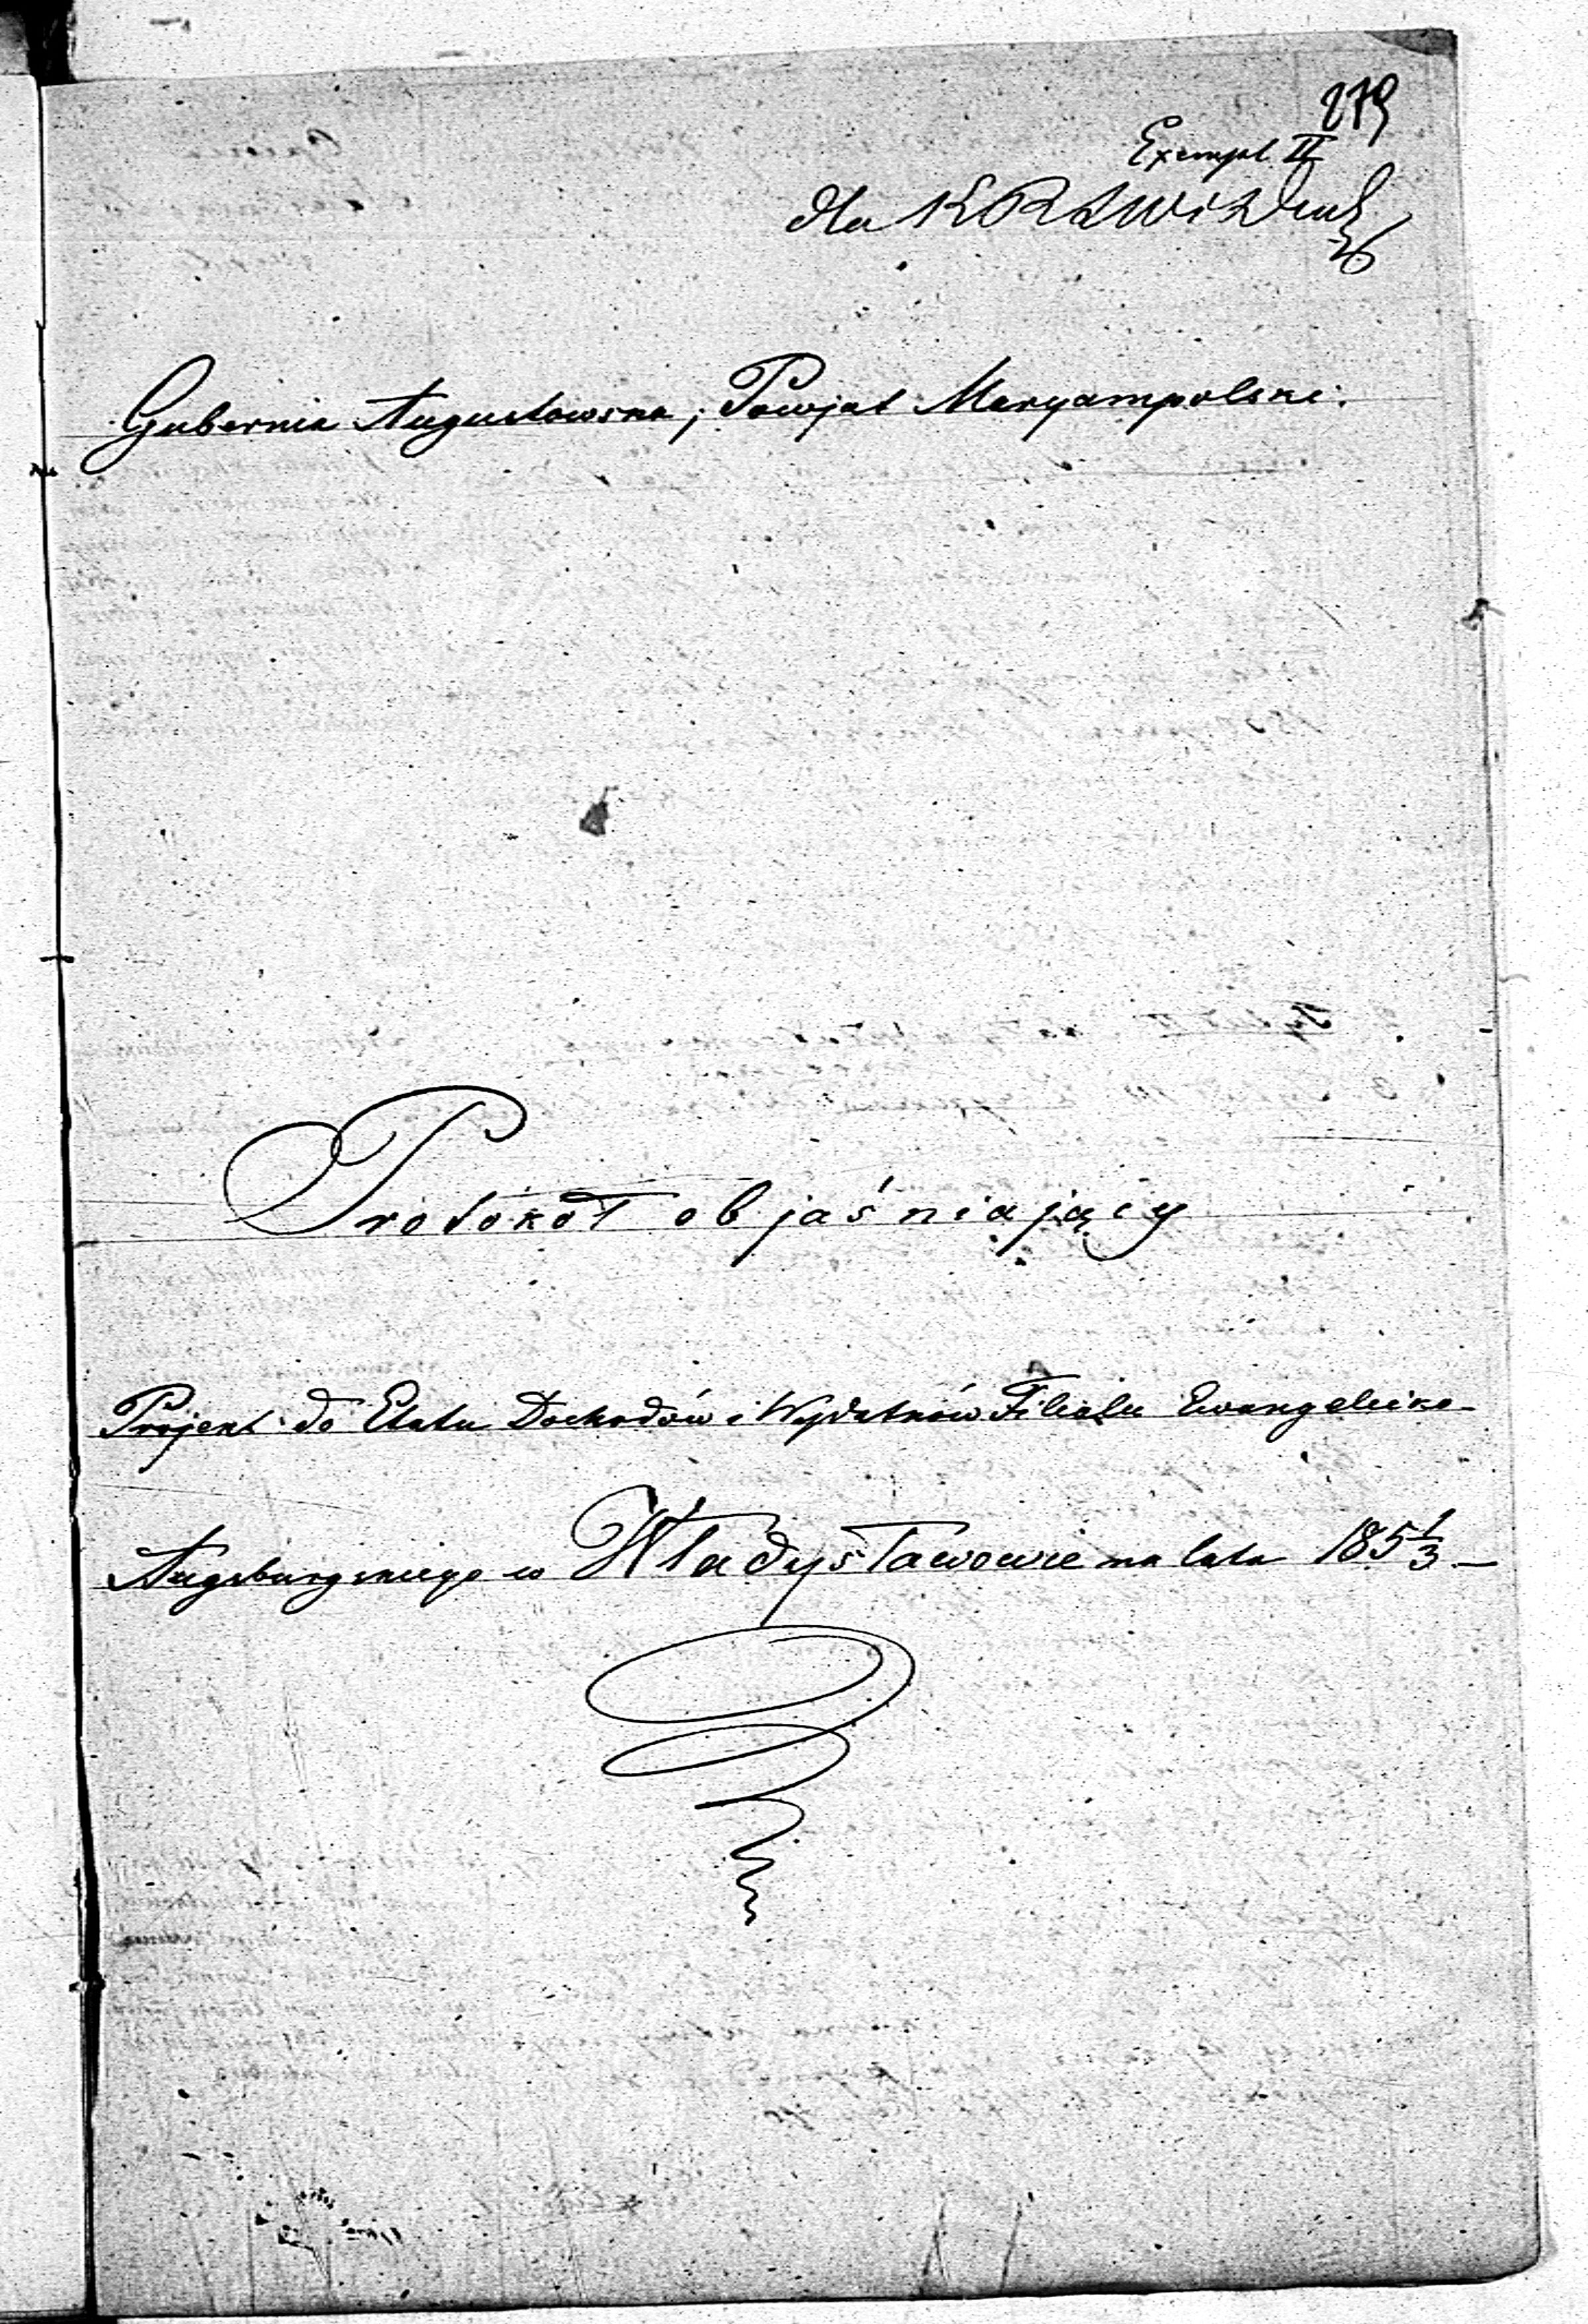 279
Exempl II
dla K R S W i D
Gubernia Augustowska, Powjat Maryampolski.
Protokół objaśniający
Projekt do Etatu Dochodów i Wydatków Filiału Ewangelicko-
Augsburgskiego w Władysławowie na lata 185 1/3 —